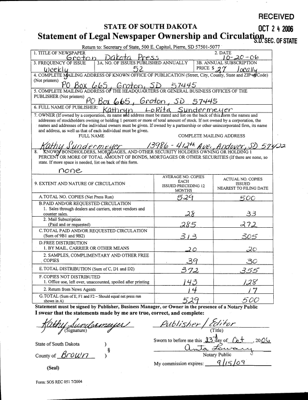 RECEIVED
OCT 24 2006
S.D. SEC. OF STATE
STATE OF SOUTH DAKOTA
Statement of Legal Newspaper Ownership and Circulation
Return to: Secretary of State, 500 E. Capitol, Pierre, SD 57501-5077
1. TITLE OF NEWSPAPER
Groton Dakota Press
2. DATE
10-20-06
3. FREQUENCY OF ISSUE
Weekly
3A. NO. OF ISSUES PUBLISHED ANNUALLY
52
3B. ANNUAL SUBSCRIPTION
PRICE $ 27 locally
4. COMPLETE MAILING ADDRESS OF KNOWN OFFICE OF PUBLICATION (Street, City, County, State and ZIP+4 Code)
(Not printers)
PO Box 665, Groton, SD 57445
5. COMPLETE MAILING ADDRESS OF THE HEADQUARTERS OR GENERAL BUSINESS OFFICES OF PUBLISHER
(Not printers)
PO Box 665, Groton, SD 57445
6. FULL NAME OF PUBLISHER:
Kathleen LaRita Sundermeyer
7. OWNER (If owned by a corporation, its name and address must be stated and also
FULL NAME
COMPLETE MAILING ADDRESS
Kathy Sundermeyer
Andover, SD 57422
8. KNOWN BONDHOLDERS, MORTGAGEES, AND OTHER SECURITY HOLDERS OWNING OR HOLDING 1
PERCENT OR MORE OF TOTAL AMOUNT OF BONDS, MORTGAGES, OR OTHER SECURITIES (If there are none, so
state. If more space is needed, list on back of this form.
none
9. EXTENT AND NATURE OF CIRCULATION
AVERAGE NO. COPIES
EACH
ISSUED PRECEDING 12
MONTHS
ACTUAL NO. COPIES
ISSUED
NEAREST TO FILING DATE
A. TOTAL NO. COPIES (Net Press Run)
529
500
B. PAID AND/OR REQUESTED CIRCULATION
1. Sales through dealers and carriers, street vendors and
counter sales.
28
33
2. Mail Subscription
(Paid and or requested)
285
272
C. TOTAL PAID AND/OR REQUESTED CIRCULATION
(Sum of 9B1 and 9B2)
313
305
D. FREE DISTRIBUTION
1. BY MAIL, CARRIER OR OTHER MEANS
20
20
2. SAMPLES, COMPLIMENTARY AND OTHER FREE
COPIES
39
30
E. TOTAL DISTRIBUTION (Sum of C, D1 and D2)
372
355
F. COPIES NOT DISTRIBUTED
1. Office use, left over, unaccounted, spoiled after printing
143
128
2. Return from News Agents
14
17
G. TOTAL (Sum of E, F1 and F2 - Should equal net press run
shown in A)
529
500
Statement must be signed by Publisher, Business Manager, or Owner in the presence of a Notary Public
I swear that the statements made by me are true, correct, and complete:
Kathy Sundermeyer
(Signature)
Publisher / Editor
(Title)
State of South Dakota )
Sworn to before me this 23rd day of Oct 2006
County of Brown )
Notary Public
(Seal)
My commission expires: 9/15/09
Form: SOS REC 051 7/2004